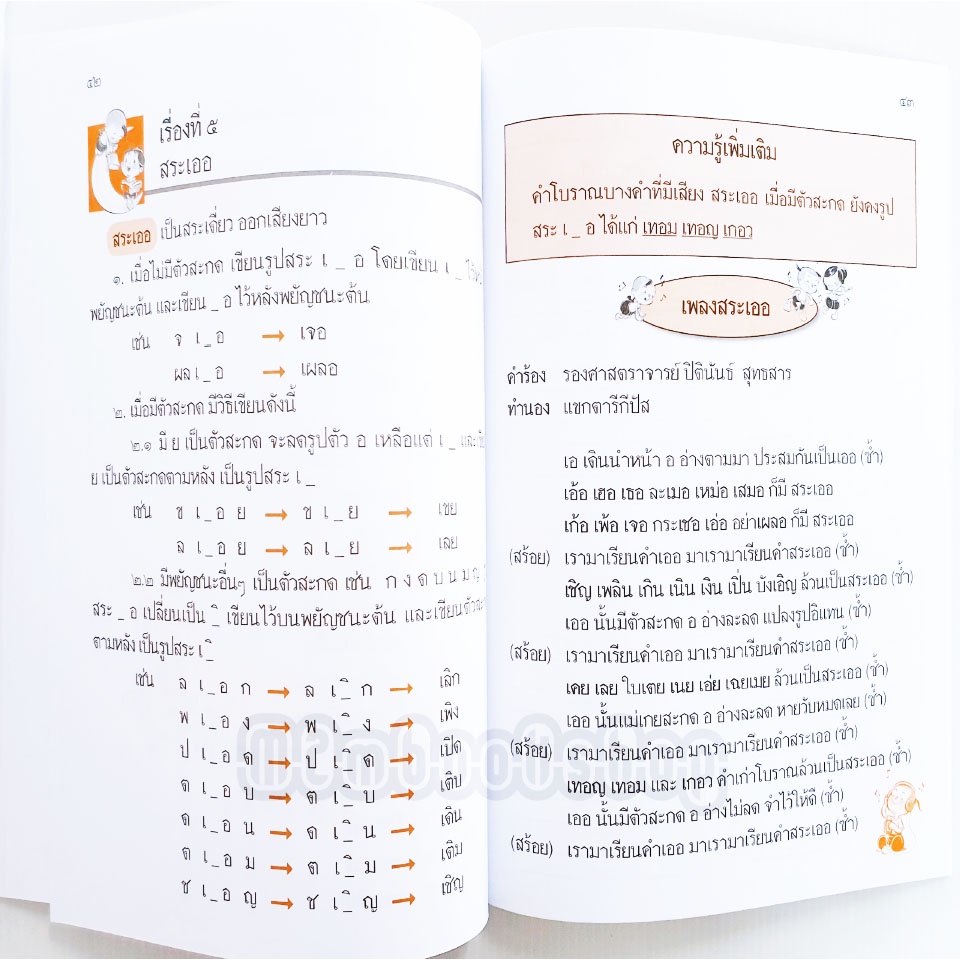 ๔๒
เรื่องที่ ๕
สระเออ
สระเออ เป็นสระเดี่ยว ออกเสียงยาว
๑. เมื่อไม่มีตัวสะกด เขียนรูปสระ เ _ อ โดยเขียน เ _ ไว้
พยัญชนะต้น และเขียน _ อ ไว้หลังพยัญชนะต้น
เช่น จ เ _ อ → เจอ
ผล เ _ อ → เผลอ
๒. เมื่อมีตัวสะกด มีวิธีเขียนดังนี้
๒.๑ มี ย เป็นตัวสะกด จะลดรูปตัว อ เหลือแต่ เ _ และ
ย เป็นตัวสะกดตามหลัง เป็นรูปสระ เ _
เช่น ข เ _ อ ย → ข เ _ ย → เขย
ล เ _ อ ย → ล เ _ ย → เลย
๒.๒ มีพยัญชนะอื่นๆ เป็นตัวสะกด เช่น ก ง ด บ น ม ญ
สระ _ อ เปลี่ยนเป็น _ิ เขียนไว้บนพยัญชนะต้น และเขียนตัวสะ
ตามหลัง เป็นรูปสระ เ _ิ
เช่น ล เ _ อ ก → ล เ _ิ ก → เลิก
พ เ _ อ ง → พ เ _ิ ง → เพิง
ป เ _ อ ด → ป เ _ิ ด → เปิด
ต เ _ อ บ → ต เ _ิ บ → เติบ
ด เ _ อ น → ด เ _ิ น → เดิน
ต เ _ อ ม → ต เ _ิ ม → เติม
ช เ _ อ ญ → ช เ _ิ ญ → เชิญ
๔๓
ความรู้เพิ่มเติม
คำโบราณบางคำที่มีเสียง สระเออ เมื่อมีตัวสะกด ยังคงรูป
สระ เ _ อ ได้แก่ เทอม เทอญ เกอว
เพลงสระเออ
คำร้อง รองศาสตราจารย์ ปิตินันธ์ สุทธสาร
ทำนอง แขกตารีกีปัส
เอ เดินนำหน้า อ อ่างตามมา ประสมกันเป็นเออ (ซ้ำ)
เอ้อ เฮอ เธอ ละเมอ เหม่อ เสมอ ก็มี สระเออ
เก้อ เพ้อ เจอ กระเชอ เอ่อ อย่าเผลอ ก็มี สระเออ
(สร้อย) เรามาเรียนคำเออ มาเรามาเรียนคำสระเออ (ซ้ำ)
เชิญ เพลิน เกิน เนิน เงิน เปิ่น บังเอิญ ล้วนเป็นสระเออ (ซ้ำ)
เออ นั้นมีตัวสะกด อ อ่างละลด แปลงรูปอิแทน (ซ้ำ)
(สร้อย) เรามาเรียนคำเออ มาเรามาเรียนคำสระเออ (ซ้ำ)
เคย เลย ใบเตย เนย เอ่ย เฉยเมย ล้วนเป็นสระเออ (ซ้ำ)
เออ นั้นแม่เกยสะกด อ อ่างละลด หายวับหมดเลย (ซ้ำ)
(สร้อย) เรามาเรียนคำเออ มาเรามาเรียนคำสระเออ (ซ้ำ)
เทอญ เทอม และ เกอว คำเก่าโบราณล้วนเป็นสระเออ (ซ้ำ)
เออ นั้นมีตัวสะกด อ อ่างไม่ลด จำไว้ให้ดี (ซ้ำ)
(สร้อย) เรามาเรียนคำเออ มาเรามาเรียนคำสระเออ (ซ้ำ)